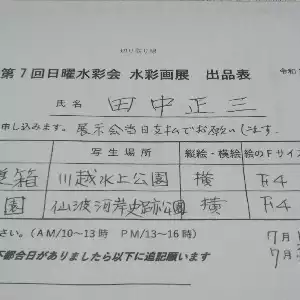 切り取り線
第7回日曜水彩会 水彩画展 出品表 令和
氏名 田中正三
申し込みます。展示会当日支払でお願いします。
写生場所 縦絵・横絵 絵のFサイズ
箱 川越水上公園 横 F4
園 仙波河岸史跡公園 横 F4
さい。(AM/10~13時 PM/13~16時) 7月
不都合日がありましたら以下に追記願います 7月